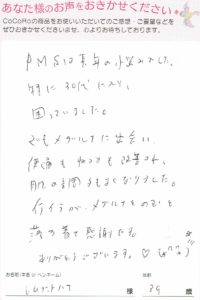 あなた様のお声をおきかせください
CoCoRoの商品をお使いいただいてのご感想・ご要望などを
ぜひおきかせください。心よりお待ちしております。
PMSは長年の悩みでした。
特に30代に入り、
困っていました。
でもメグルナに出会い、
便通も 改善され、
肌の調子もよくなりました。
イライラが、メグルナをのむと
落ち着て感謝です
ありがとうございます。♡
お名前(本名 or ペンネーム)
年齢
様 39 歳